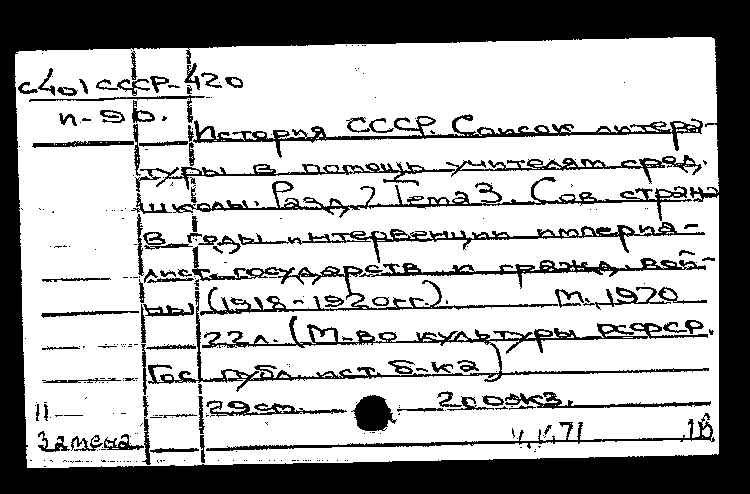 с401 СССР-420
п-90.
История СССР. Список литера-
туры в помощь учителям сред.
школы. Разд. 7 Тема 3. Сов. страна
в годы интервенции империа-
лист. государств и гражд. вой-
ны (1918-1920гг). М., 1970
22л. (М-во культуры РСФСР.
Гос. публ. ист. б-ка)
29см. 200экз.
11
Замена 71 1В